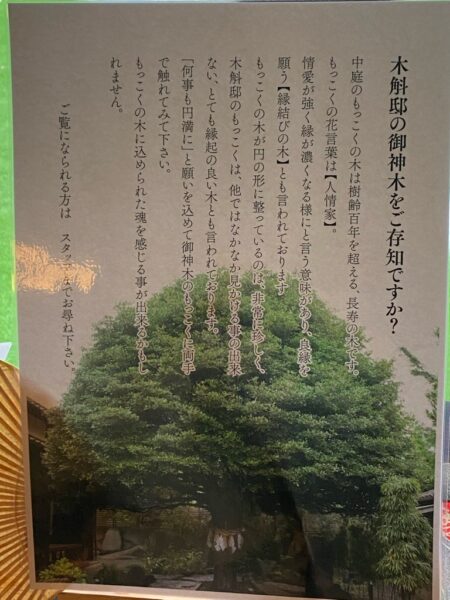 木斛邸の御神木をご存知ですか？
中庭のもっこくの木は樹齢百年を超える、長寿の木です。
もっこくの花言葉は【人情家】。
情愛が強く縁が濃くなる様にと言う意味があり、良縁を
願う【縁結びの木】とも言われております
もっこくの木が円の形に整っているのは、非常に珍しく、
木斛邸のもっこくは、他ではなかなか見かける事の出来
ない、とても縁起の良い木とも言われております。
「何事も円満に」と願いを込めて御神木のもっこくに両手
で触れてみて下さい。
もっこくの木に込められた魂を感じる事が出来るかもし
れません。
ご覧になられる方は　スタッフまでお尋ね下さい。